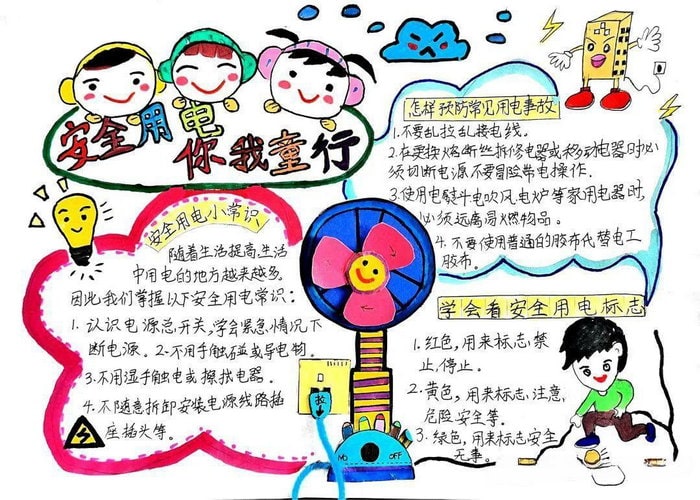 安全用电
你我童行
安全用电小常识
随着生活提高,生活
中用电的地方越来越多,
因此我们掌握以下安全用电常识：
1.认识电源总开关,学会紧急情况下
断电源。2.不用手触碰或导电物。
3.不用湿手触电或擦拭电器。
4.不随意拆卸安装电源线路插
座插头等。
怎样预防常见用电事故
1.不要乱拉乱接电线。
2.在更换熔断丝拆修电器或移动电器时必
须切断电源不要冒险带电操作.
3.使用电熨斗电吹风电炉等家用电器时,
必须远离易燃物品。
4.不要使用普通的胶布代替电工
胶布。
学会看安全用电标志
1.红色,用来标志禁
止,停止。
2.黄色,用来标志注意,
危险安全等.
3.绿色,用来标志安全
无事。
OFF